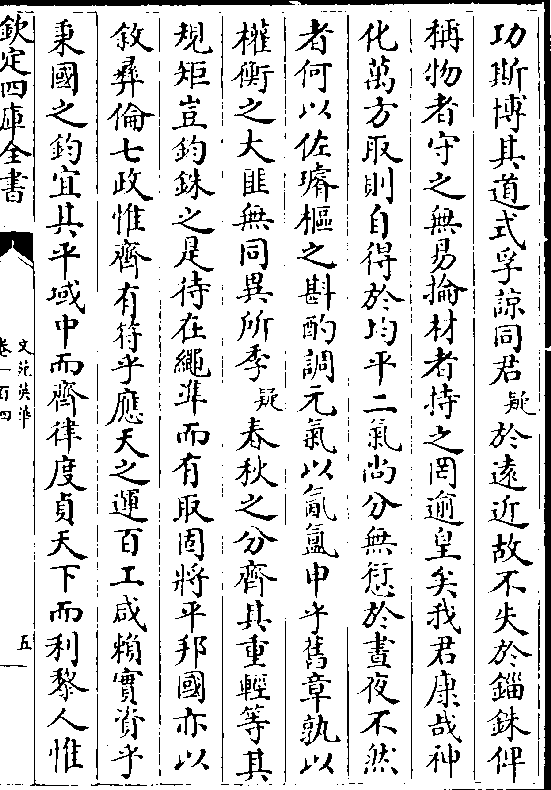 功斯博其道式孚諒同君疑於遠近故不失於錙銖俾
稱物者守之無易掄材者持之罔逾皇矣我君康哉神
化萬方取則自得於均平二氣尚分無愆於晝夜不然
者何以佐璿樞之斟酌調元氣以氤氳申乎舊章孰以
權衡之大匪無同異所季疑春秋之分齊其重輕等其
規矩豈鈞銖之是待在繩準而有取固將平邦國亦以
敘彝倫七政惟齊有符乎應天之運百工咸賴實資乎
秉國之鈞宜其平域中而齊律度貞天下而利黎人惟
欽定四庫全書
文苑英華
卷一百四
五